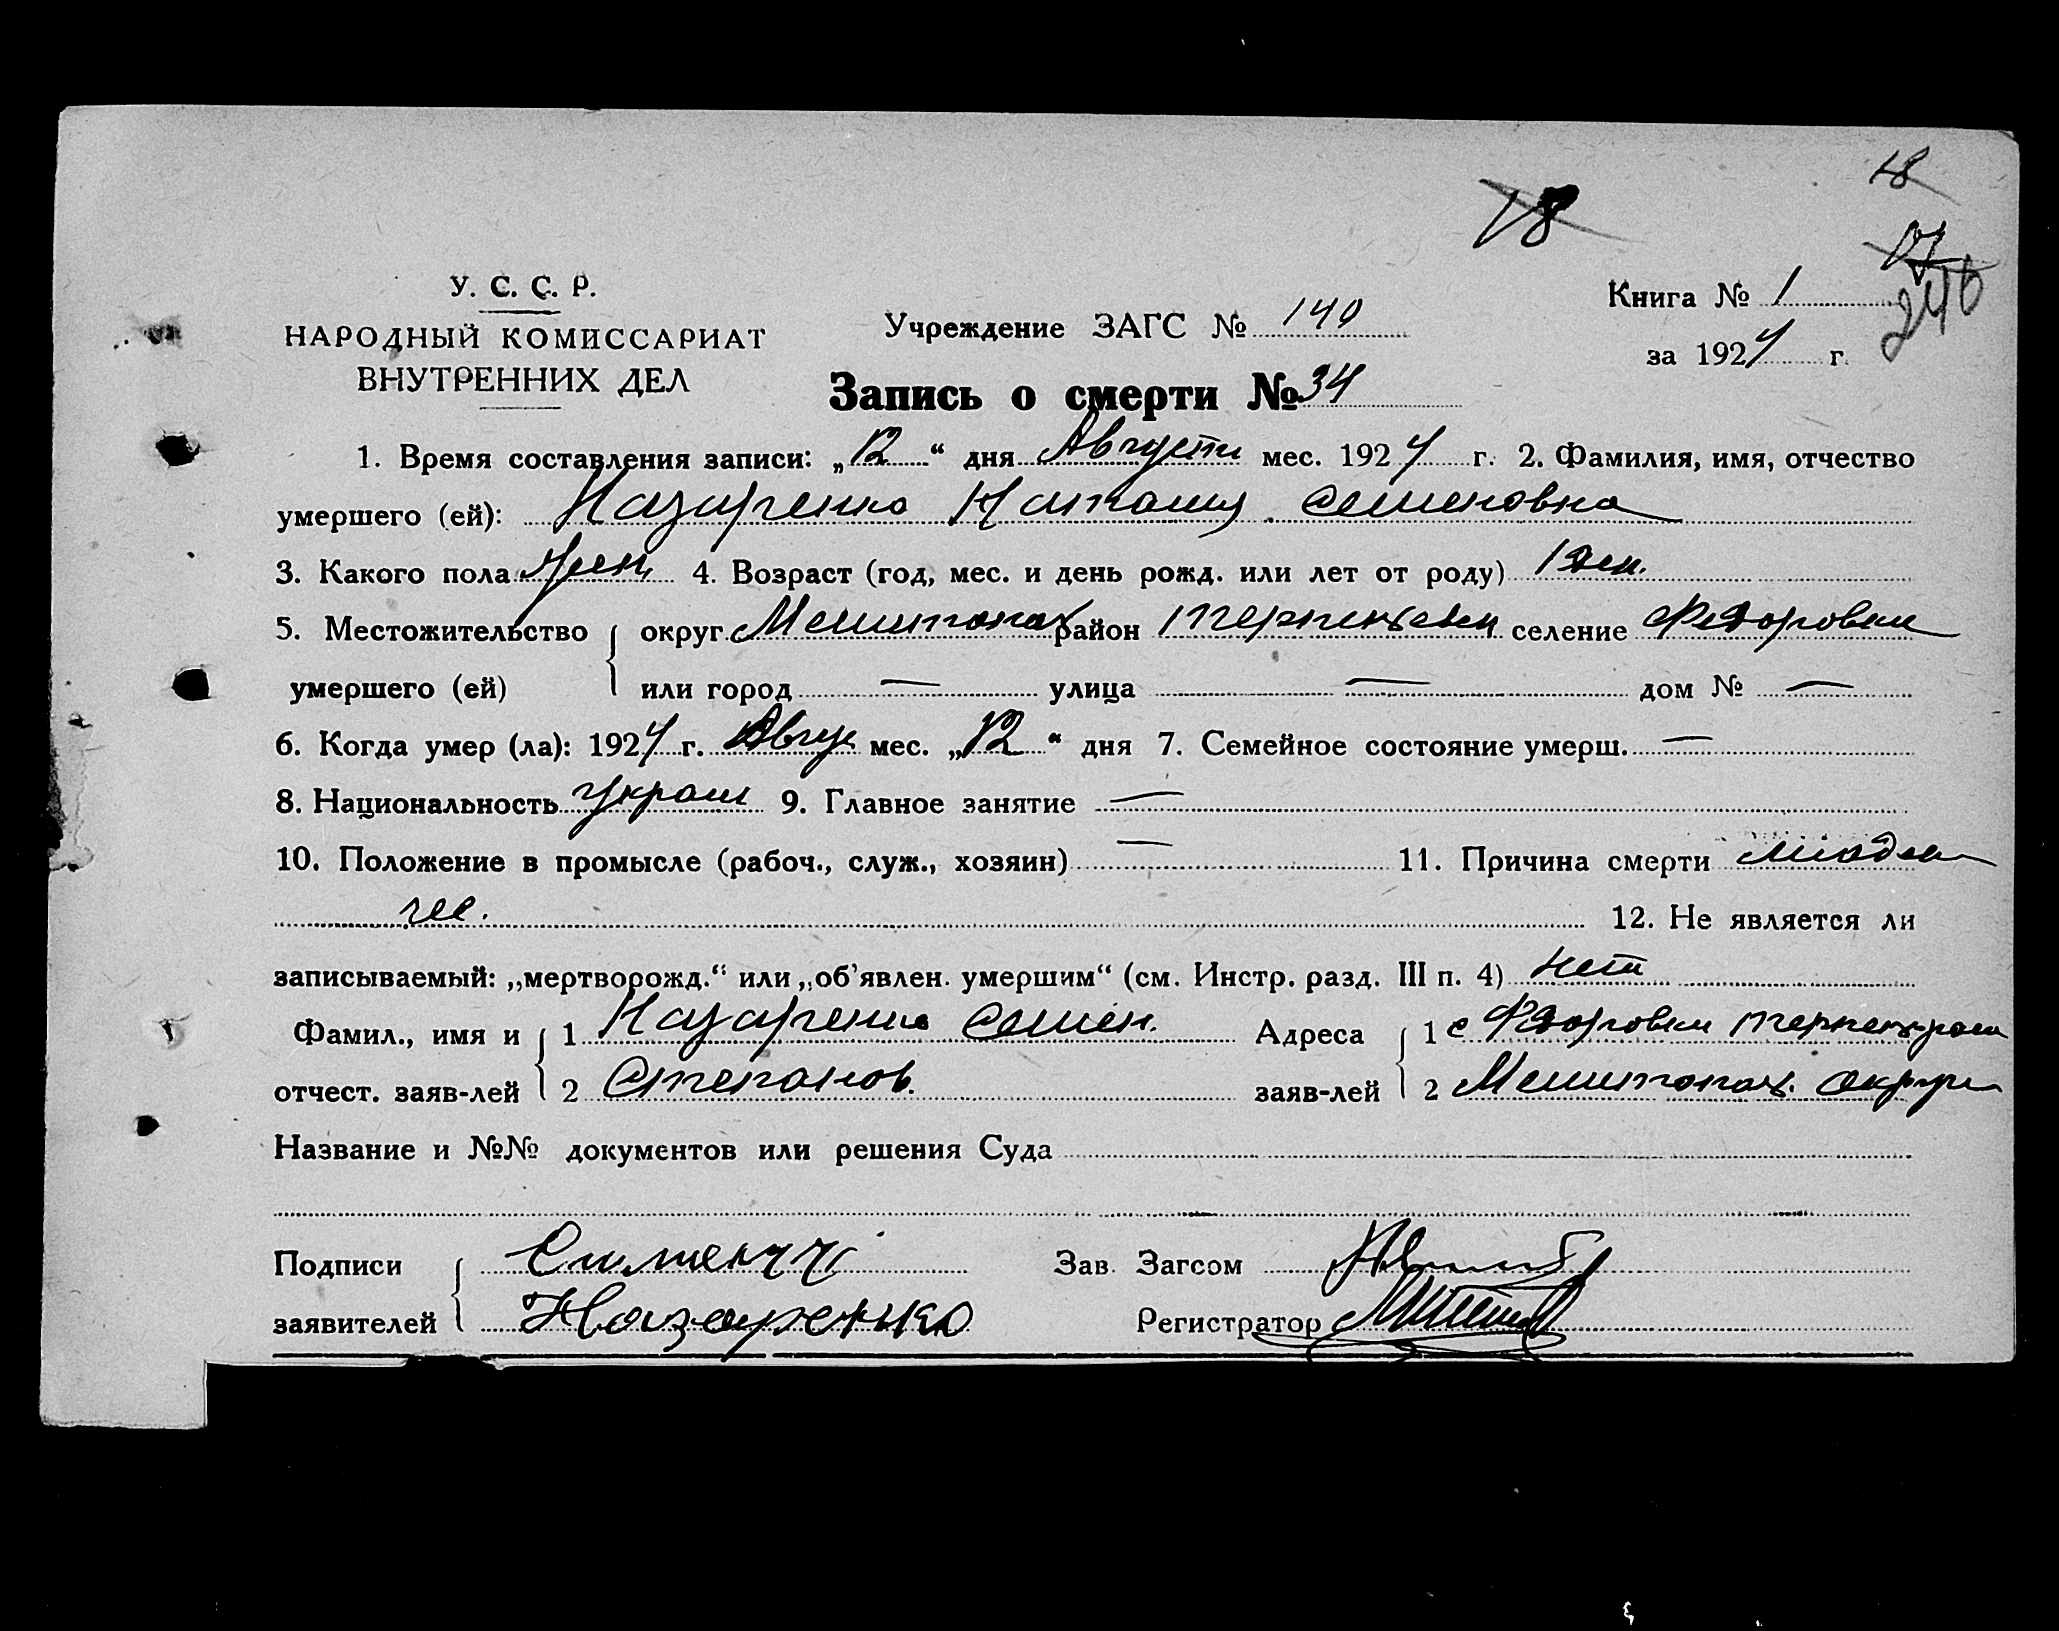 18
18
17
246
У. С. С. Р.
НАРОДНЫЙ КОМИССАРИАТ
ВНУТРЕННИХ ДЕЛ
Учреждение ЗАГС № 140
Книга № 1
за 1924 г.
Запись о смерти № 34
1. Время составления записи: „12“ дня Августа мес. 1924 г. 2. Фамилия, имя, отчество
умершего (ей): Назаренко Наталия Семеновна
3. Какого пола жен. 4. Возраст (год, мес. и день рожд. или лет от роду) 1 ден.
5. Местожительство округ Мелитопол район Терпеньевск селение Федоровка
умершего (ей) или город — улица — дом № —
6. Когда умер (ла): 1924 г. Авгус мес. „12“ дня 7. Семейное состояние умерш. —
8. Национальность Украин 9. Главное занятие —
10. Положение в промысле (рабоч., служ., хозяин) — 11. Причина смерти младен
чес. 12. Не является ли
записываемый: „мертворожд.“ или „об'явлен. умершим“ (см. Инстр. разд. III п. 4) нет
Фамил., имя и 1 Назаренко Семен. Адреса 1 с Федоровки Терпеньев. раен
отчест. заяв-лей 2 Степанов. заяв-лей 2 Мелитопол. округа
Название и №№ документов или решения Суда
Подписи Зав. Загсом
заявителей Назаренко Регистратор